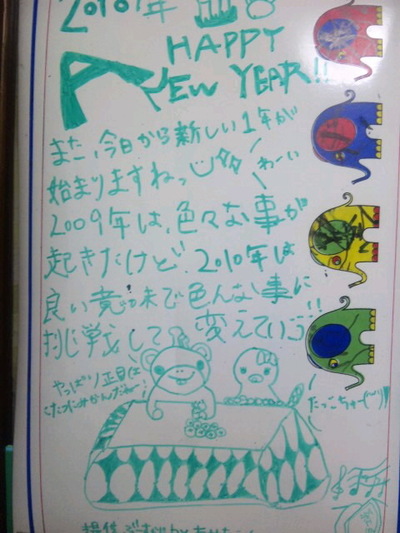 2010年
A HAPPY
NEW YEAR!!
また、今日から新しい1年が
始まりますねっ
わーい
2009年は、色々な事が
起きたけど、2010年は
良い意味で色んな事に
挑戦して、変えていこう!!
やっぱり正月は
こたつにみかんだねー!